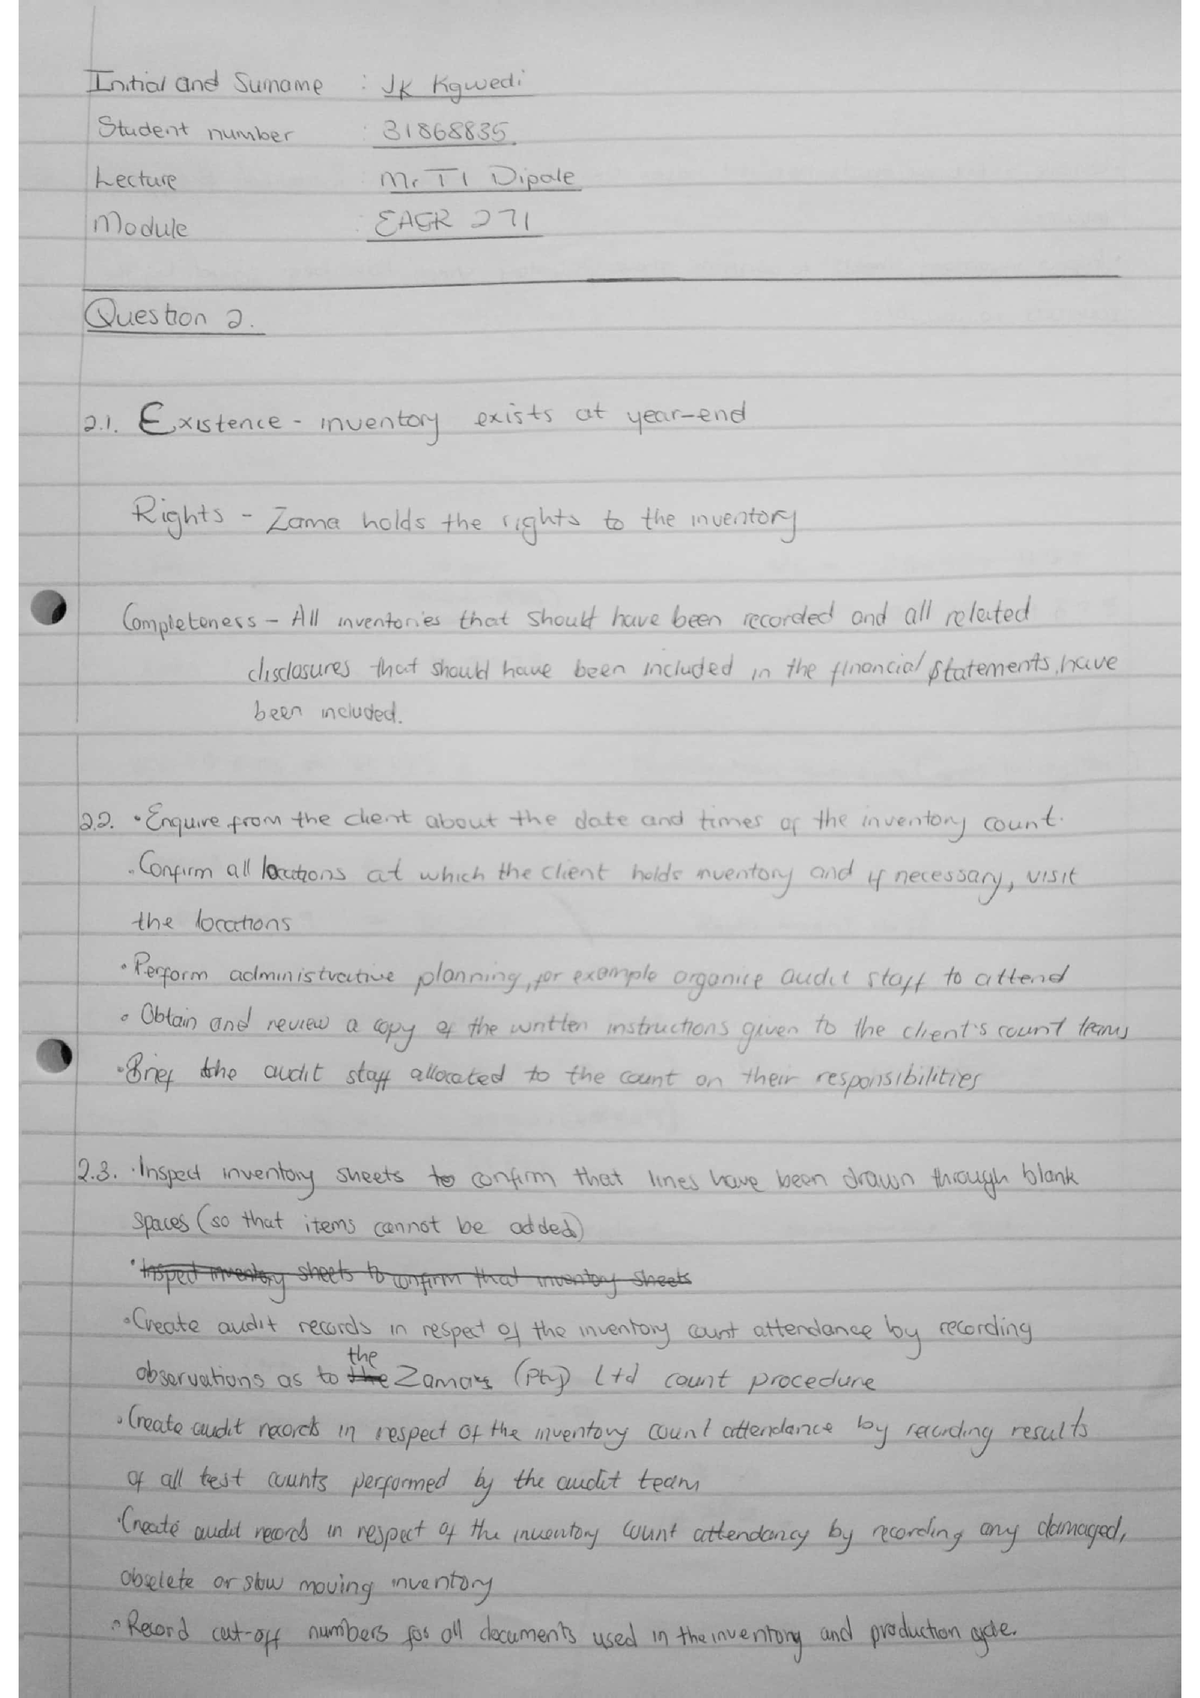 Initial and Surname : JK Kgwedi
Student number : 31868835
Lecture : Mr TI Dipale
Module : EAGR 271
Question 2.
2.1. Existence - inventory exists at year-end
Rights - Zama holds the rights to the inventory
Completeness - All inventories that should have been recorded and all related
disclosures that should have been included in the financial statements, have
been included.
2.2. • Enquire from the client about the date and times of the inventory count.
• Confirm all locations at which the client holds inventory and if necessary, visit
the locations
• Perform administrative planning, for example organice audit staff to attend
• Obtain and review a copy of the written instructions given to the client's count teams
• Brief the audit staff allocated to the count on their responsibilities
2.3. • Inspect inventory sheets to confirm that lines have been drawn through blank
spaces (so that items cannot be added)
• Inspect inventory sheets to confirm that inventory sheets
• Create audit records in respect of the inventory count attendance by recording
the
observations as to the Zama's (Pty) Ltd count procedure
• Create audit records in respect of the inventory count attendance by recording results
of all test counts performed by the audit team
• Create audit records in respect of the inventory count attendancy by recording any damaged,
obselete or slow moving inventory
• Record cut-off numbers for all documents used in the inventory and production cycle.